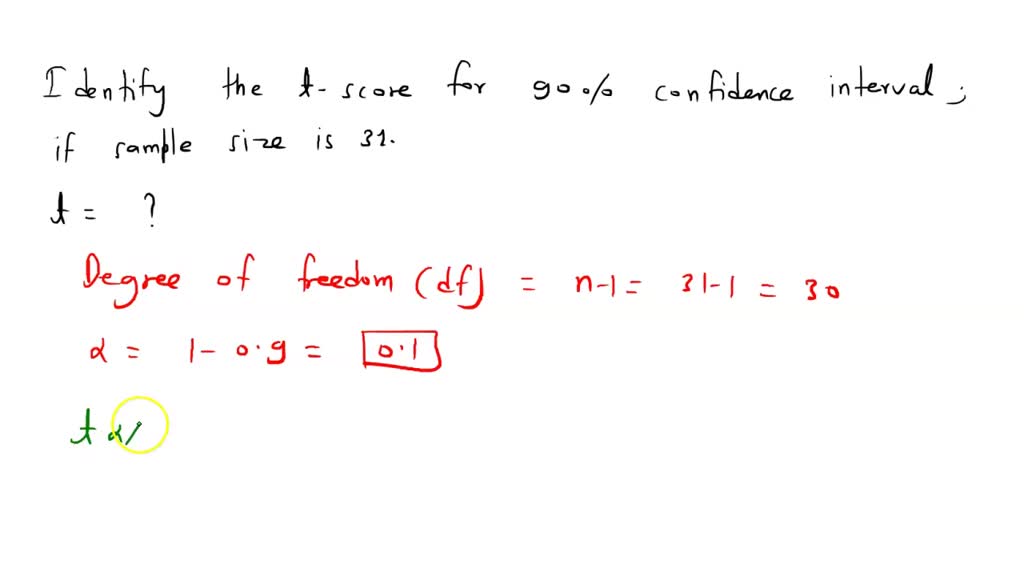 Identify the t-score for 90% confidence interval,
if sample size is 31.
t = ?
Degree of freedom (df) = n-1 = 31-1 = 30
α = 1- 0.9 = 0.1
t α/